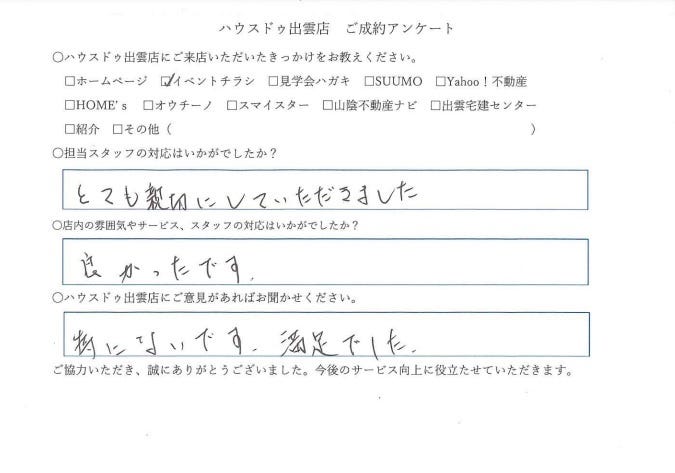 ハウスドゥ出雲店 ご成約アンケート
〇ハウスドゥ出雲店にご来店いただいたきっかけをお教えください。
□ホームページ ☑イベントチラシ □見学会ハガキ □SUUMO □Yahoo！不動産
□HOME's □オウチーノ □スマイスター □山陰不動産ナビ □出雲宅建センター
□紹介 □その他（ ）
〇担当スタッフの対応はいかがでしたか？
とても親切にしていただきました
〇店内の雰囲気やサービス、スタッフの対応はいかがでしたか？
良かったです.
〇ハウスドゥ出雲店にご意見があればお聞かせください。
特にないです. 満足でした.
ご協力いただき、誠にありがとうございました。今後のサービス向上に役立たせていただきます。